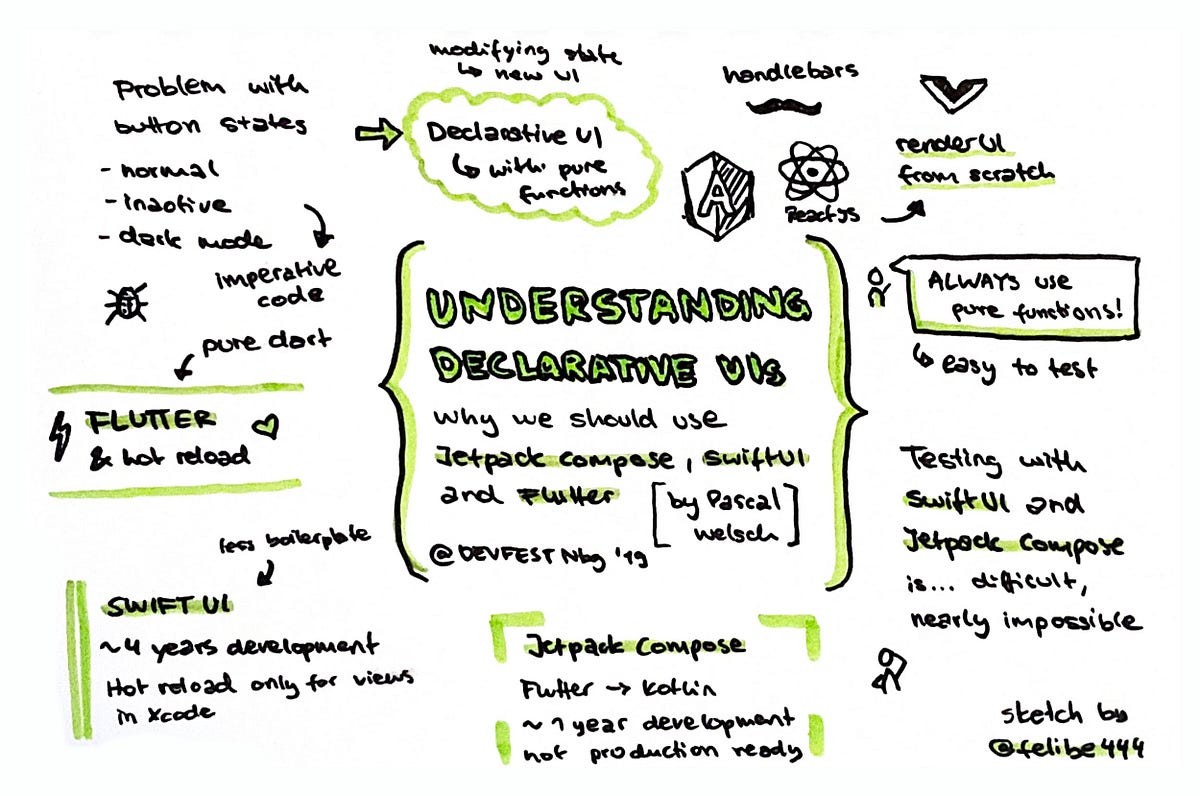 Problem with
button states
- normal
- inactive
- dark mode
imperative
code
modifying state
↳ new UI
Declarative UI
↳ with pure
functions
handlebars
A
ReactJS
render UI
from scratch
ALWAYS use
pure functions!
↳ easy to test
UNDERSTANDING
DECLARATIVE UIs
why we should use
Jetpack Compose, SwiftUI
and Flutter
[by Pascal
Welsch]
@DEVFEST Nbg '19
pure dart
FLUTTER
& hot reload
less boilerplate
SWIFT UI
~4 years development
Hot reload only for views
in Xcode
Jetpack Compose
Flutter → Kotlin
~1 year development
not production ready
Testing with
SwiftUI and
Jetpack Compose
is... difficult,
nearly impossible
sketch by
@felibe444